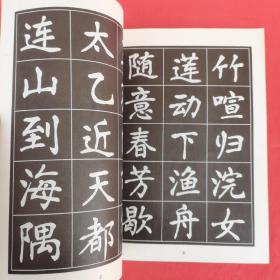 竹喧归浣女
莲动下渔舟
随意春芳歇
太乙近天都
连山到海隅